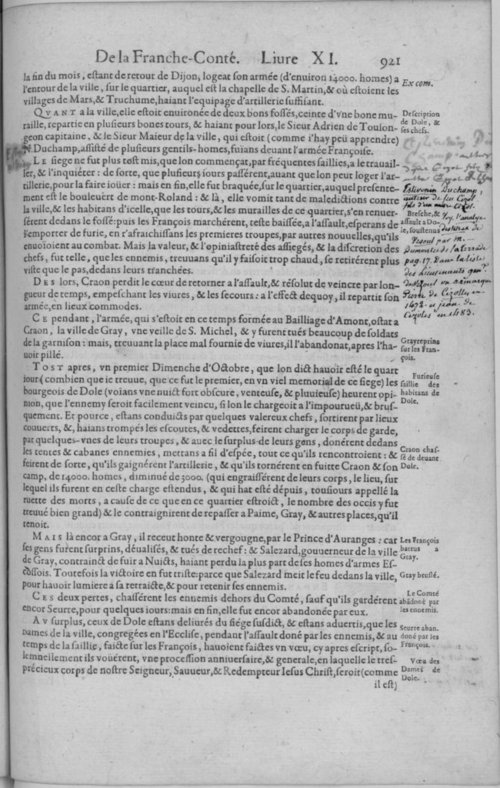 De la Franche-Conté. Liure XI. 921
la fin du mois, estant de retour de Dijon, logeat son armée (d'enuiron 14000. homes) a
l'entour de la ville, sur le quartier, auquel est la chapelle de S. Martin, & où estoient les
villages de Mars, & Truchume, haiant l'equipage d'artillerie suffisant.
Ex com.
QVANT a la ville, elle estoit enuironée de deux bons fossés, ceinte d'vne bone mu-
raille, repartie en plusieurs bones tours, & haiant pour lors, le Sieur Adrien de Toulon-
geon capitaine, & le Sieur Maieur de la ville, qui estoit (comme i'hay peu apprendre)
N. Duchamp, assisté de plusieurs gentils-homes, fuians deuant l'armée Françoise.
Description
de Dole, &
ses chefs.
LE siege ne fut plus tost mis, que lon commençat, par fréquentes saillies, a le trauail-
ler, & l'inquiéter: de sorte, que plusieurs iours passérent, auant que lon peut loger l'ar-
tillerie, pour la faire ioüer: mais en fin, elle fut braquée, sur le quartier, auquel presente-
ment est le bouleuert de mont-Roland: & là, elle vomit tant de maledictions contre
la ville, & les habitans d'icelle, que les tours, & les murailles de ce quartier, s'en renuer-
sérent dedans le fossé: puis les François marchérent, teste baissée, a l'assault, esperans de
l'emporter de furie, en r'afraichissans les premieres troupes, par autres nouuelles, qu'ils
enuoioient au combat. Mais la valeur, & l'opiniastreté des assiegés, & la discretion des
chefs, fut telle, que les ennemis, treuuans qu'il y faisoit trop chaud, se retirérent plus
viste que le pas, dedans leurs tranchées.
Bresche, &
assault a Do-
le, soustenus
DES lors, Craon perdit le cœur de retorner a l'assault, & résolut de veincre par lon-
gueur de temps, empeschant les viures, & les secours: a l'effect dequoy, il repartit son
armée, en lieux commodes.
CE pendant, l'armée, qui s'estoit en ce temps formée au Bailliage d'Amont, ostat a
Craon, la ville de Gray, vne veille de S. Michel, & y furent tués beaucoup de soldats
de la garnison: mais, treuuant la place mal fournie de viures, il l'abandonat, apres l'ha-
uoir pillé.
Gray reprins
sur les Fran-
çois.
TOST apres, vn premier Dimenche d'Octobre, que lon dict hauoir esté le quart
iour (combien que ie treuue, que ce fut le premier, en vn viel memorial de ce siege) les
bourgeois de Dole (voians vne nuict fort obscure, venteuse, & pluuieuse) heurent opi-
nion, que l'ennemy seroit facilement veincu, si lon le chargeoit a l'impourueü, & brus-
quement. Et pource, estans conduicts par quelques valereux chefs, sortirent par lieux
couuerts, &, haians trompés les escoutes, & vedettes, feirent charger le corps de garde,
par quelques-vnes de leurs troupes, & auec le surplus de leurs gens, donérent dedans
les tentes & cabanes ennemies, mettans a fil d'espée, tout ce qu'ils rencontroient: &
feirent de sorte, qu'ils gaignérent l'artillerie, & qu'ils tornérent en fuitte Craon & son
camp, de 14000. homes, diminué de 3000. (qui engraissérent de leurs corps, le lieu, sur
lequel ils furent en ceste charge estendus, & qui hat esté dépuis, tousiours appellé la
ruette des morts, a cause de ce que en ce quartier estroict, le nombre des occis y fut
treuué bien grand) & le contraignirent de repasser a Paime, Gray, & autres places, qu'il
tenoit.
Furieuse
saillie des
habitans de
Dole.
Craon chas-
sé de deuant
Dole.
MAIS là encor a Gray, il receut honte & vergougne, par le Prince d'Auranges: car
ses gens furent surprins, déualisés, & tués de rechef: & Salezard, gouuerneur de la ville
de Gray, contrainct de fuir a Nuicts, haiant perdu la plus part de ses homes d'armes Es-
cossois. Toutefois la victoire en fut triste: parce que Salezard meit le feu dedans la ville,
pour hauoir lumiere a sa retraicte, & pour retenir ses ennemis.
Les François
battus a
Gray.
Gray bruslé.
CES deux pertes, chassérent les ennemis dehors du Comté, sauf qu'ils gardérent
encor Seurre, pour quelques iours: mais en fin, elle fut encor abandonée par eux.
Le Comté
abãdoné par
les ennemis.
AV surplus, ceux de Dole estans deliurés du siége susdict, & estans aduertis, que les
dames de la ville, congregées en l'Ecclise, pendant l'assault doné par les ennemis, & au
temps de la saillie, faicte sur les François, hauoient faictes vn vœu, cy apres escript, so-
lemnellement ils vouérent, vne procession anniuersaire, & generale, en laquelle le tres-
précieux corps de nostre Seigneur, Sauueur, & Redempteur Iesus Christ, seroit (comme
il est)
Seurre aban.
doné par les
François.
Vœu des
Dames de
Dole.